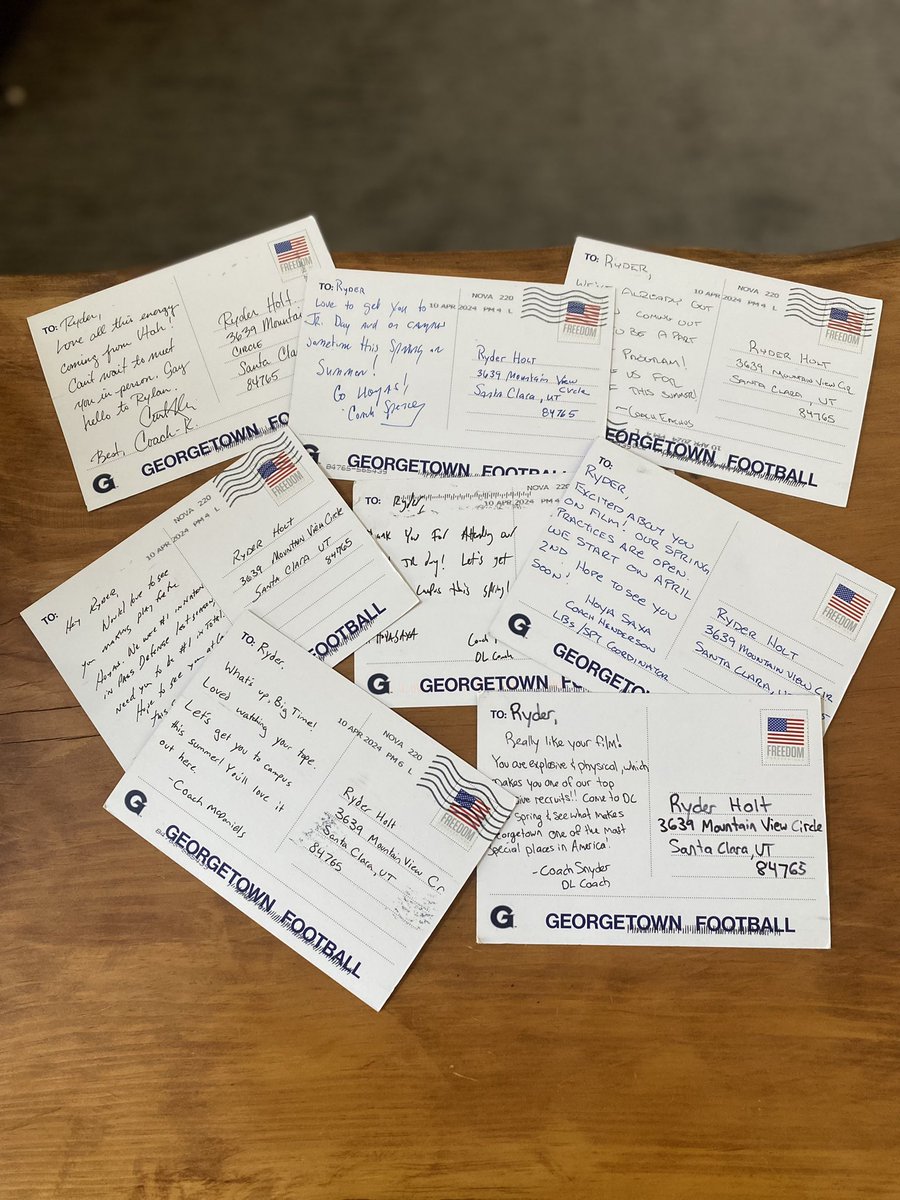 TO: Ryder,
Love all this energy
coming from Utah!
Cant wait to meet
you in-person. Say
hello to Rylan.
Best, Coach-R.
Ryder Holt
3639 Mountain
CIRCLE
Santa Cla
84765
FREEDOM
G GEORGETOWN FOOTBALL
TO: RYDER
Love to get you to
JR. Day and on campus
sometime this Spring or
Summer!
GO HOYAS!
Coach Spencer
10 APR 2024 PM 4 L
NOVA 220
FREEDOM
Ryder Holt
3639 Mountain View
Circle
Santa Clara, UT
84765
GEORGETOWN FOOTBALL
84765-565439
TO: RYDER,
WE'VE ALREADY GOT
COMING OUT
BE A PART
PROGRAM!
US FOR
THIS SUMMER!
10 APR 2024 PM 4 L
NOVA 220
FREEDOM
RYDER HOLT
3639 MOUNTAIN VIEW CIR
SANTA CLARA, UT
84765
GEORGETOWN FOOTBALL
TO:
Hey Ryder,
Would love to see
you making plays for the
Hoyas. We were #1 in
in Pass Defense last season
need you to be #1 in
Hope to see you at
NOVA 220
10 APR 2024 PM 4 L
FREEDOM
RYDER HOLT
3639 MOUNTAIN VIEW Circle
SANTA CLARA UT
84765
FOOTBALL
TO: Ryder,
Thank You For Attending our
JR day! Let's get
campus this spring!
HOYA SAXA
DL Coach
NOVA 220
10 APR 2024 PM 4
G GEORGETOWN FOOTBALL
TO:
RYDER,
EXCITED ABOUT YOU
ON FILM! OUR SPRING
PRACTICES ARE OPEN.
WE START ON APRIL
2ND. HOPE TO SEE YOU
SOON!
HOYA SAXA
COACH HENDERSON
LBs/SPT COORDINATOR
FREEDOM
RYDER HOLT
3639 MOUNTAIN VIEW CIR
SANTA CLARA, UT
G GEORGETOWN
TO: Ryder,
What's up, Big Time!
Loved watching your tape.
Let's get you to campus
this summer! You'll love it
out here.
-Coach McDaniels
NOVA 220
10 APR 2024 PM 6 L
FREEDOM
Ryder Holt
3639 Mountain View Cir
Santa Clara, UT
84765
G GEORGETOWN FOOTBALL
TO: Ryder,
Really like your film!
You are explosive & physical, which
makes you one of our top
ive recruits!! Come to DC
Spring & see what makes
eorgetown one of the most
special places in America!
-Coach Snyder
DL Coach
FREEDOM
Ryder Holt
3639 Mountain View Circle
Santa Clara, UT
84765
G GEORGETOWN FOOTBALL